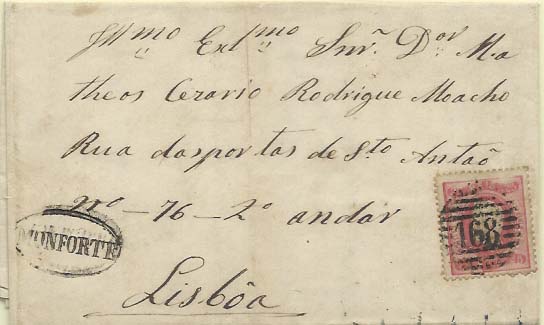 Illmo Exlmo Snr. Dor Ma
theos Cezario Rodrigue Moacho
Rua dasportas de Sto Antaõ
no - 76 - 2o andar
MONFORTE
168
Lisbôa